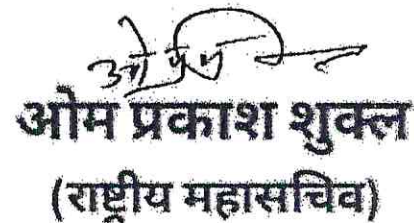 ओम प्रकाश शुक्ल
(राष्ट्रीय महासचिव)